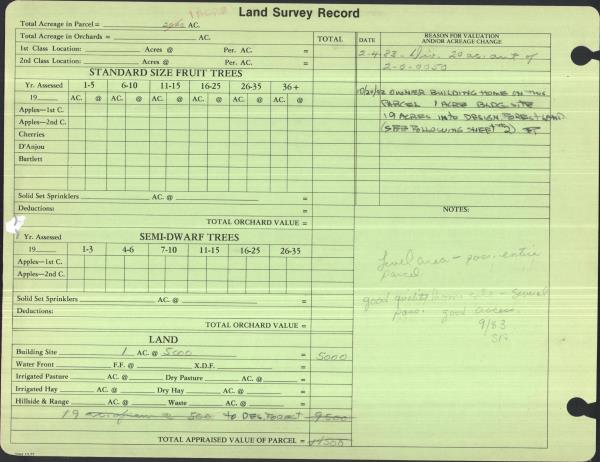 Land Survey Record
1 ACRE
Total Acreage in Parcel = 20.00 AC.
Total Acreage in Orchards = AC. TOTAL DATE REASON FOR VALUATION AND/OR ACREAGE CHANGE
1st Class Location: Acres @ Per. AC.
2-4-82 - Div. 20 ac. out of
2nd Class Location: Acres @ Per. AC. =
2-0-9950
STANDARD SIZE FRUIT TREES
Yr. Assessed 1-5 6-10 11-15 16-25 26-35 36+
19 AC. @ AC. @ AC. @ AC. @ AC. @ AC. @
10/20/82 OWNER BUILDING HOME ON THIS
Apples—1st C.
PARCEL 1 ACRE BLDG. SITE
Apples—2nd C.
19 ACRES INTO DESIGN. FOREST LAND
Cherries
(SEE FOLLOWING SHEET #2)
D'Anjou
Bartlett
Solid Set Sprinklers AC. @ =
Deductions:
TOTAL ORCHARD VALUE =
NOTES:
Yr. Assessed SEMI-DWARF TREES
19 1-3 4-6 7-10 11-15 16-25 26-35
Apples—1st C.
Apples—2nd C.
Level area - poss. entire
parcel
Solid Set Sprinklers AC. @ =
good quality home site - several
Deductions:
poss. good access
TOTAL ORCHARD VALUE =
9/83
LAND
Building Site 1 AC. @ 5000 = 5000
Water Front F.F. @ X.D.F. =
Irrigated Pasture AC. @ Dry Pasture AC. @ =
Irrigated Hay AC. @ Dry Hay AC. @ =
Hillside & Range AC. @ Waste AC. @ =
19 @ 500 to DES. FOREST 9500
TOTAL APPRAISED VALUE OF PARCEL = 14500